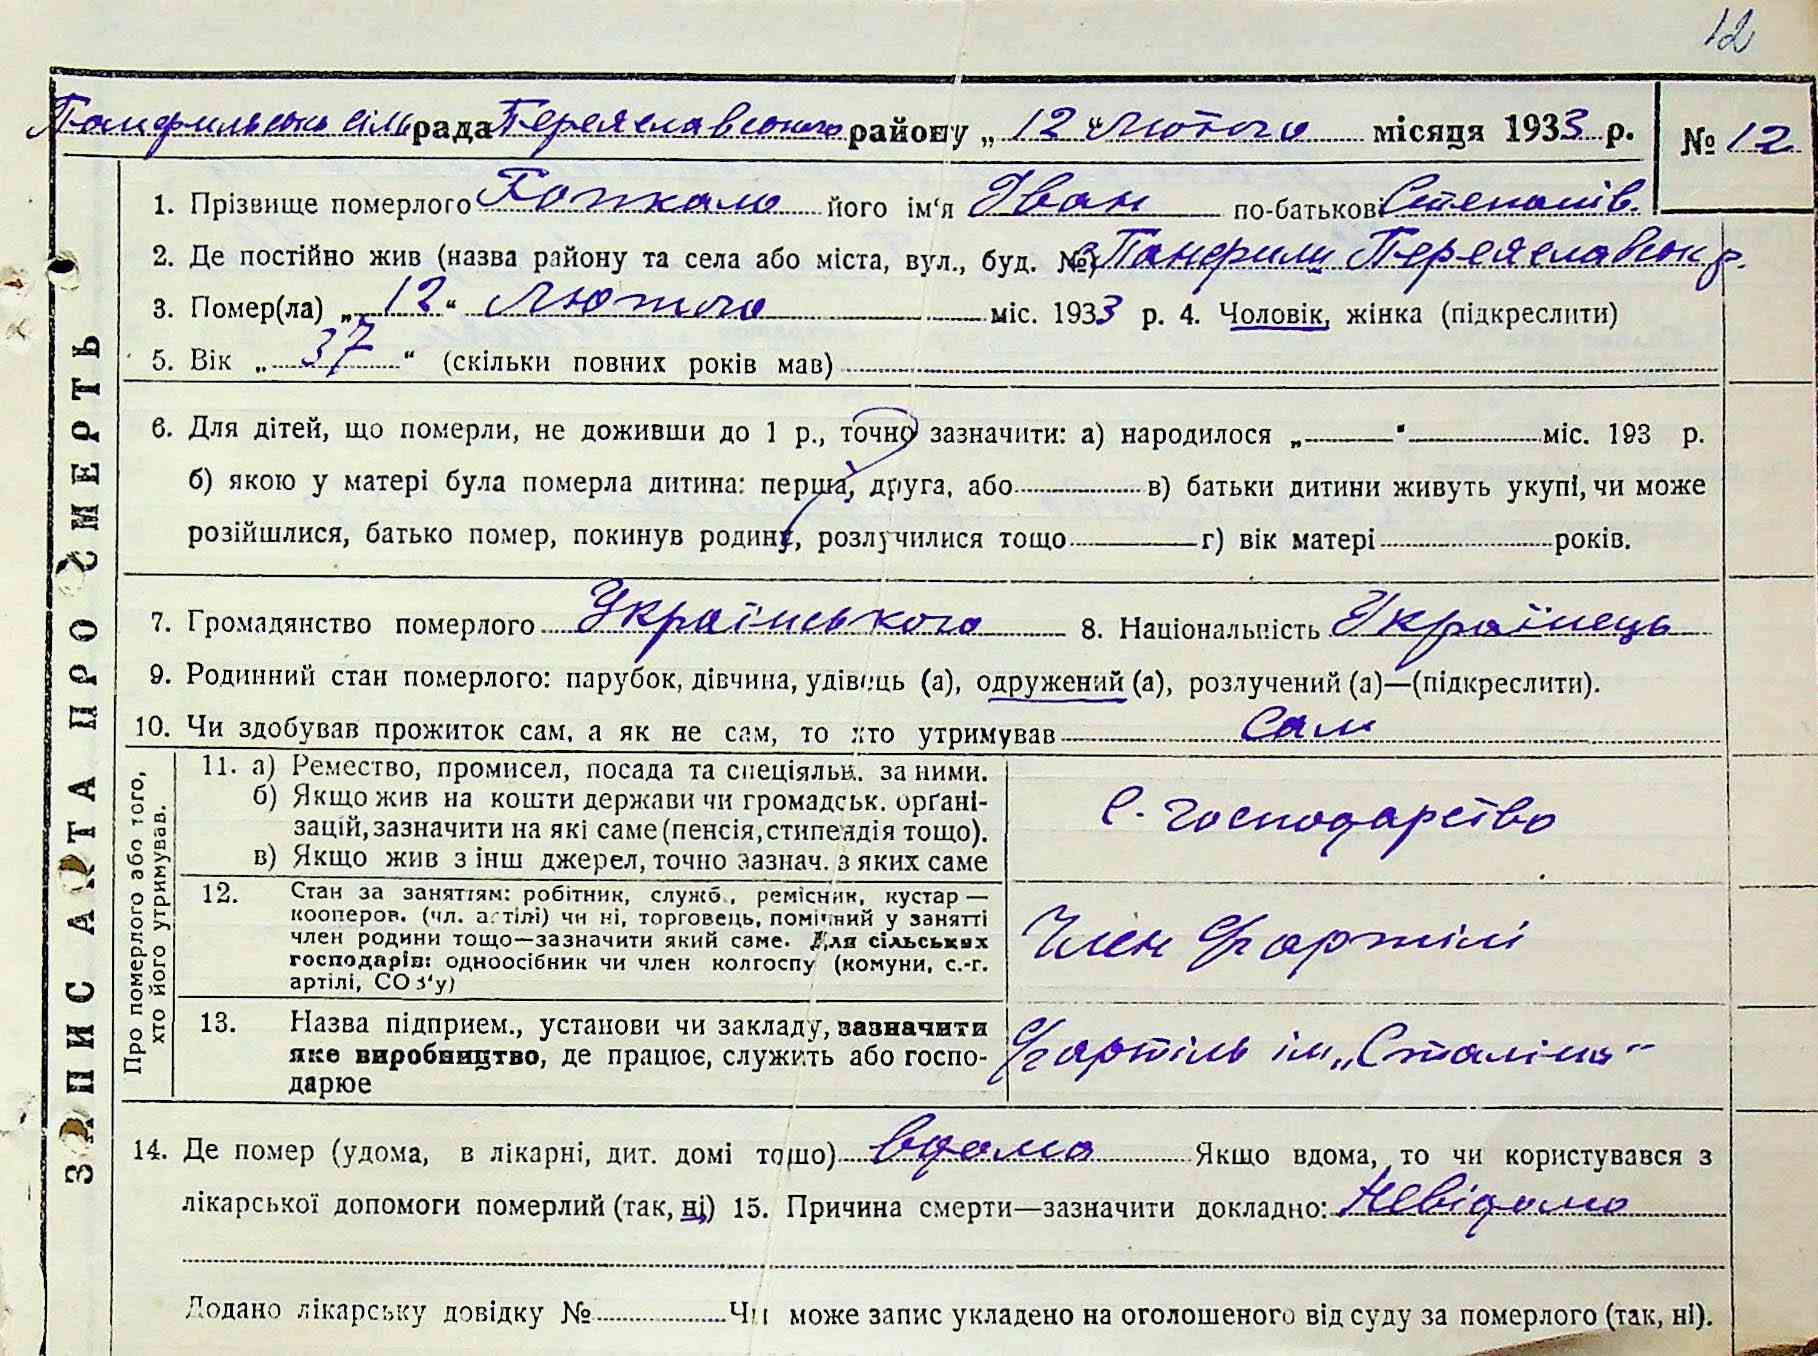 12
Помфильська сільрада Переяславського району „12“ Лютого місяця 1933 р. № 12
1. Прізвище померлого його ім‘я Іван по-батькові Степанів.
2. Де постійно жив (назва району та села або міста, вул., буд. №) с. Панфили Переяславськ р.
3. Помер(ла) „12“ Лютого міс. 1933 р. 4. Чоловік, жінка (підкреслити)
5. Вік „37“ (скільки повних років мав)
6. Для дітей, що померли, не доживши до 1 р., точно зазначити: а) народилося „ “ міс. 193 р.
б) якою у матері була померла дитина: перша, друга, або в) батьки дитини живуть укупі, чи може
розійшлися, батько помер, покинув родину, розлучилися тощо г) вік матері років.
7. Громадянство померлого Українського 8. Національність Українець
9. Родинний стан померлого: парубок, дівчина, удівець (а), одружений (а), розлучений (а)—(підкреслити).
10. Чи здобував прожиток сам, а як не сам, то хто утримував Сам
ЗАПИС АКТА ПРО СМЕРТЬ
Про померлого або того,
хто його утримував.
11. а) Ремество, промисел, посада та спеціяльн. за ними.
б) Якщо жив на кошти держави чи громадськ. орґані-
зацій, зазначити на які саме (пенсія, стипендія тощо).
в) Якщо жив з інш джерел, точно зазнач. з яких саме
с. господарство
12. Стан за заняттям: робітник, служб., ремісник, кустар —
кооперов. (чл. артілі) чи ні, торговець, помічний у занятті
член родини тощо—зазначити який саме. Для сільських
господарів: одноосібник чи член колгоспу (комуни, с.-г.
артілі, СОЗ‘у)
Член с/г артілі
13. Назва підприєм., установи чи закладу, зазначити
яке виробництво, де працює, служить або госпо-
дарює
с/г артіль ім „Сталіна“
14. Де помер (удома, в лікарні, дит. домі тощо) вдома Якщо вдома, то чи користувався з
лікарської допомоги померлий (так, ні) 15. Причина смерти—зазначити докладно: Невідомо
Додано лікарську довідку № Чи може запис укладено на оголошеного від суду за померлого (так, ні).